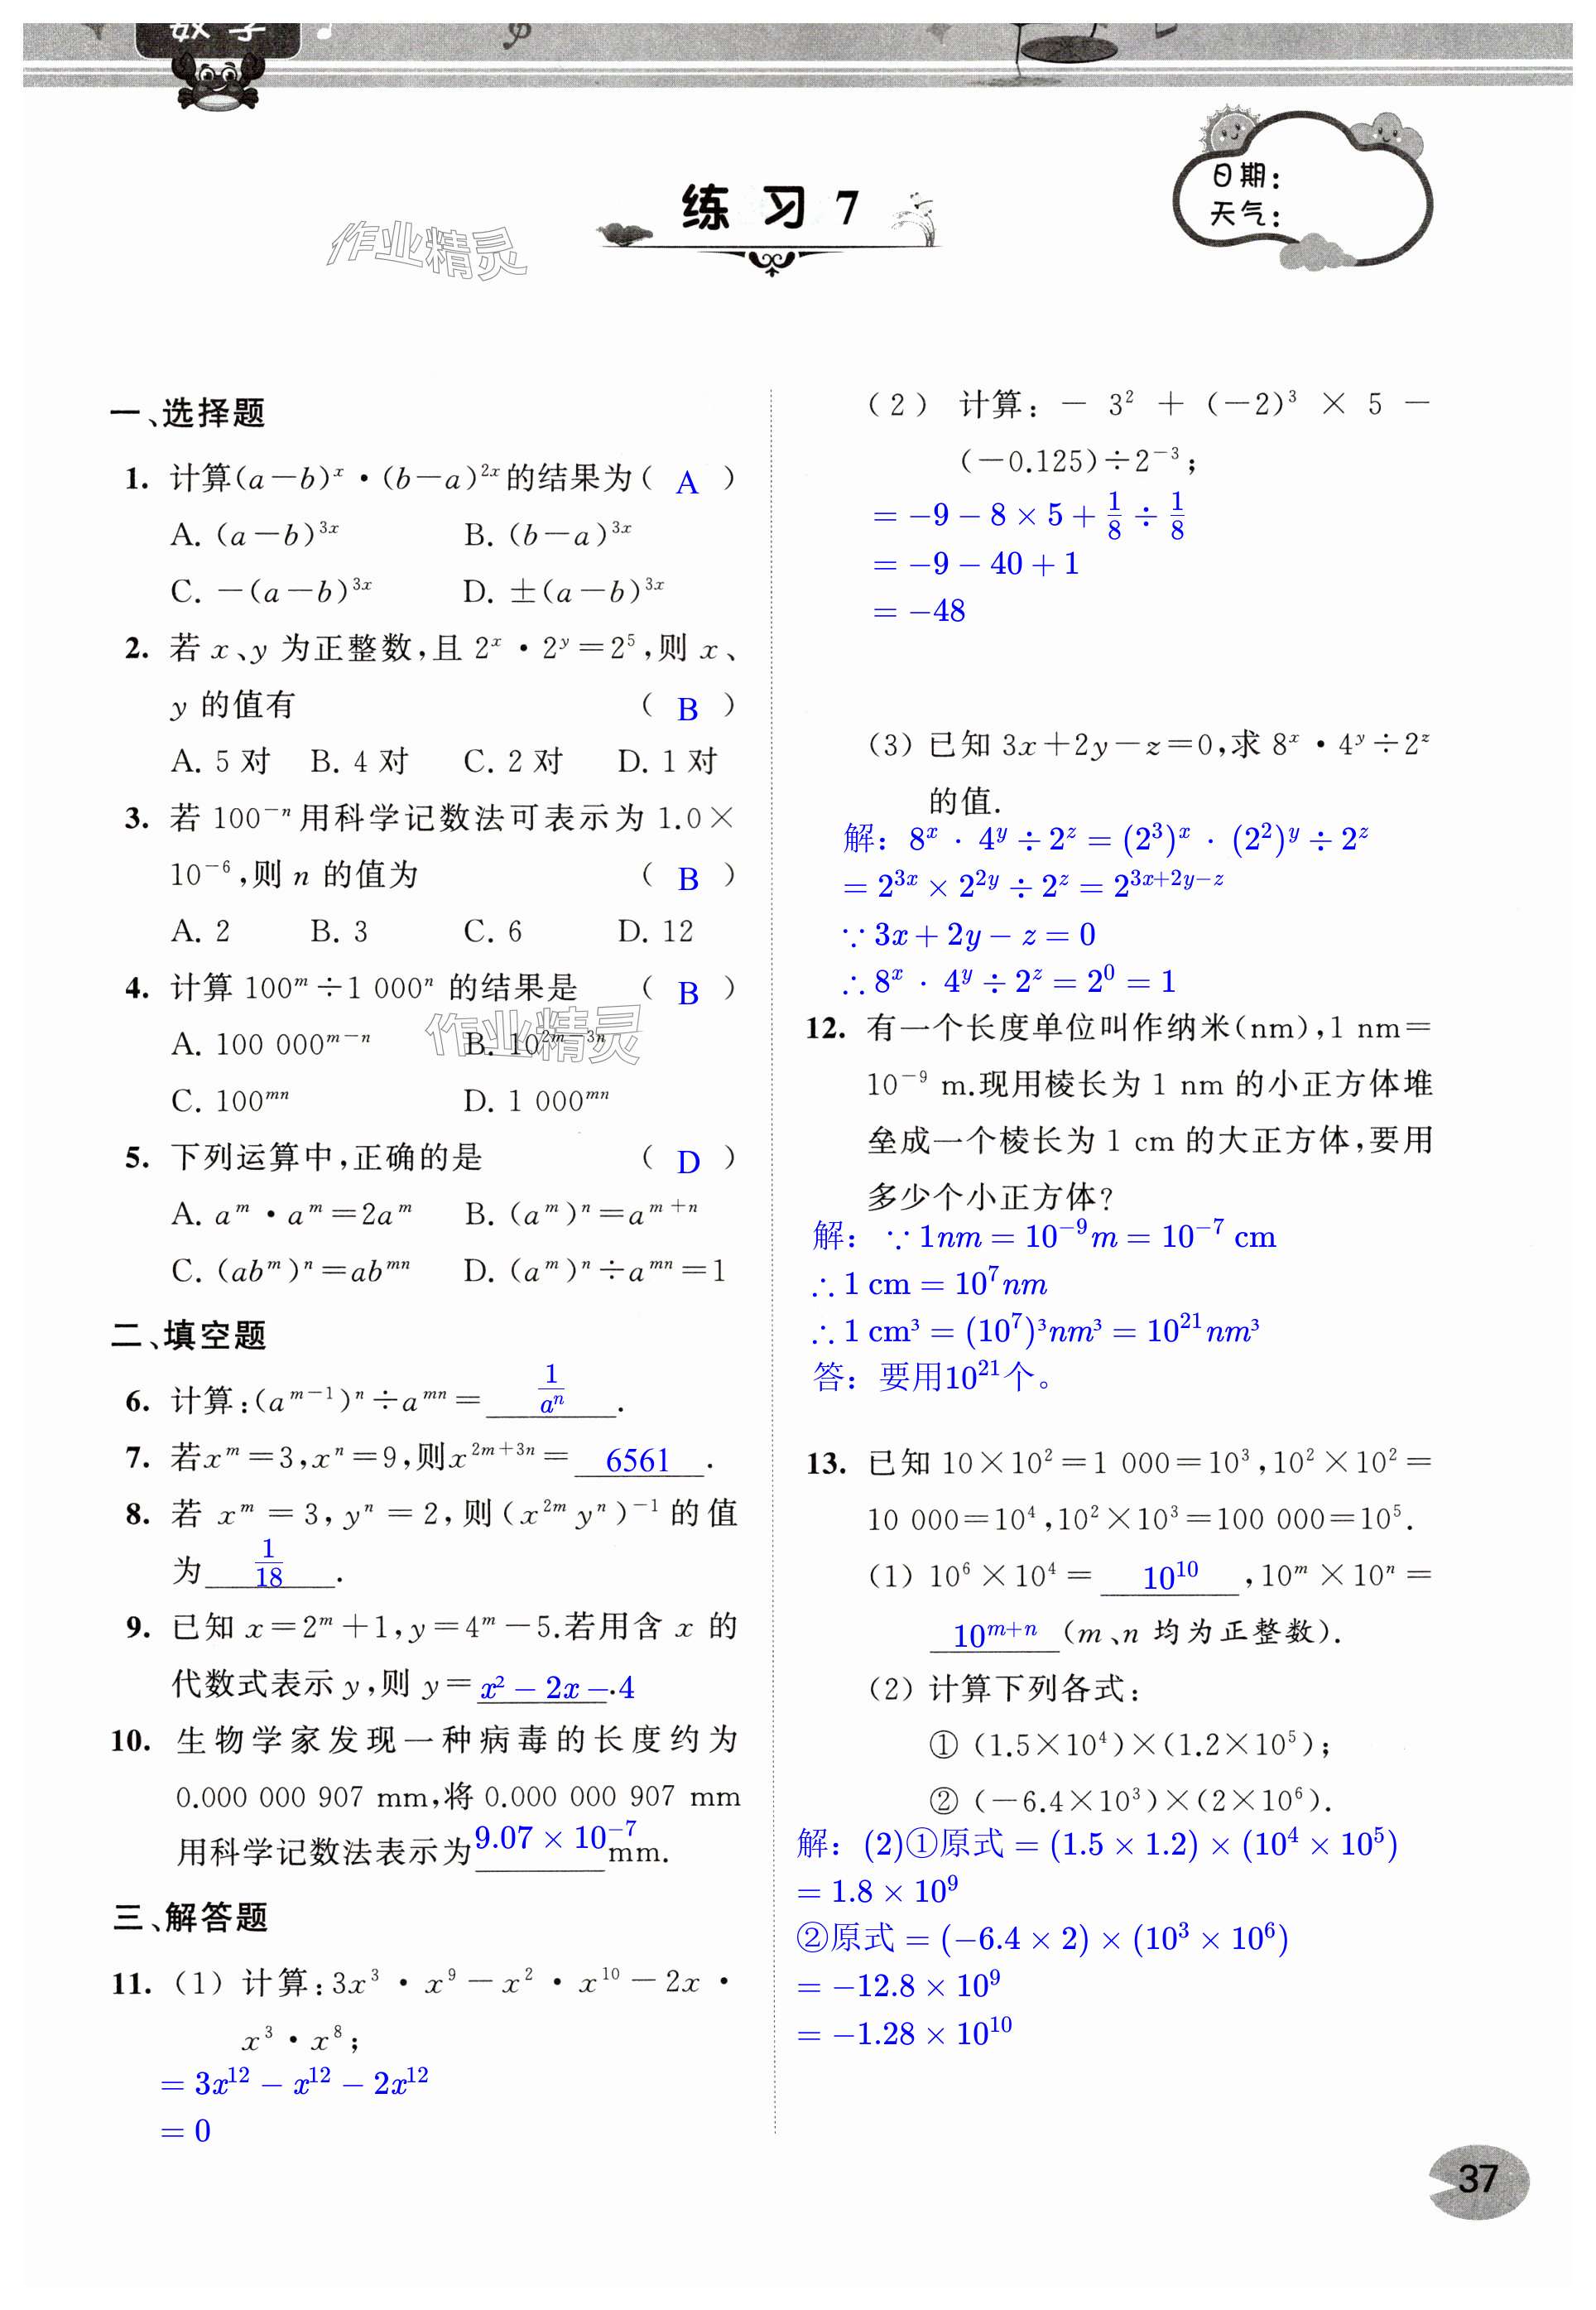 数学
练 习 7
日期：
天气：
作业精灵
一、选择题
1. 计算(a－b)ˣ・(b－a)²ˣ的结果为( A )
A. (a－b)³ˣ B. (b－a)³ˣ
C. －(a－b)³ˣ D. ±(a－b)³ˣ
2. 若 x、y 为正整数，且 2ˣ・2ʸ＝2⁵，则 x、
y 的值有 ( B )
A. 5 对 B. 4 对 C. 2 对 D. 1 对
3. 若 100⁻ⁿ用科学记数法可表示为 1.0×
10⁻⁶，则 n 的值为 ( B )
A. 2 B. 3 C. 6 D. 12
4. 计算 100ᵐ÷1 000ⁿ 的结果是 ( B )
作业精灵
A. 100 000ᵐ⁻ⁿ B. 10²ᵐ⁻³ⁿ
C. 100ᵐⁿ D. 1 000ᵐⁿ
5. 下列运算中，正确的是 ( D )
A. aᵐ・aᵐ＝2aᵐ B. (aᵐ)ⁿ＝aᵐ⁺ⁿ
C. (abᵐ)ⁿ＝abᵐⁿ D. (aᵐ)ⁿ÷aᵐⁿ＝1
二、填空题
6. 计算：(aᵐ⁻¹)ⁿ÷aᵐⁿ＝ 1/aⁿ .
7. 若xᵐ＝3，xⁿ＝9，则x²ᵐ⁺³ⁿ＝ 6561 .
8. 若 xᵐ＝3，yⁿ＝2，则(x²ᵐyⁿ)⁻¹ 的值
为 1/18 .
9. 已知 x＝2ᵐ＋1，y＝4ᵐ－5.若用含 x 的
代数式表示 y，则 y＝ x²－2x－4 .
10. 生物学家发现一种病毒的长度约为
0.000 000 907 mm，将 0.000 000 907 mm
用科学记数法表示为 9.07×10⁻⁷ mm.
三、解答题
11. (1) 计算：3x³・x⁹－x²・x¹⁰－2x・
x³・x⁸；
＝3x¹²－x¹²－2x¹²
＝0
(2) 计算：－3²＋(－2)³×5－
(－0.125)÷2⁻³；
＝－9－8×5＋1/8÷1/8
＝－9－40＋1
＝－48
(3) 已知 3x＋2y－z＝0，求 8ˣ・4ʸ÷2ᶻ
的值.
解：8ˣ・4ʸ÷2ᶻ＝(2³)ˣ・(2²)ʸ÷2ᶻ
＝2³ˣ×2²ʸ÷2ᶻ＝2³ˣ⁺²ʸ⁻ᶻ
∵3x＋2y－z＝0
∴8ˣ・4ʸ÷2ᶻ＝2⁰＝1
12. 有一个长度单位叫作纳米(nm)，1 nm＝
10⁻⁹ m.现用棱长为 1 nm 的小正方体堆
垒成一个棱长为 1 cm 的大正方体，要用
多少个小正方体？
解：∵1nm＝10⁻⁹m＝10⁻⁷ cm
∴1 cm＝10⁷nm
∴1 cm³＝(10⁷)³nm³＝10²¹nm³
答：要用10²¹个。
13. 已知 10×10²＝1 000＝10³，10²×10²＝
10 000＝10⁴，10²×10³＝100 000＝10⁵.
(1) 10⁶×10⁴＝ 10¹⁰ ，10ᵐ×10ⁿ＝
10ᵐ⁺ⁿ (m、n 均为正整数).
(2) 计算下列各式：
① (1.5×10⁴)×(1.2×10⁵)；
② (－6.4×10³)×(2×10⁶).
解：(2)①原式＝(1.5×1.2)×(10⁴×10⁵)
＝1.8×10⁹
②原式＝(－6.4×2)×(10³×10⁶)
＝－12.8×10⁹
＝－1.28×10¹⁰
37